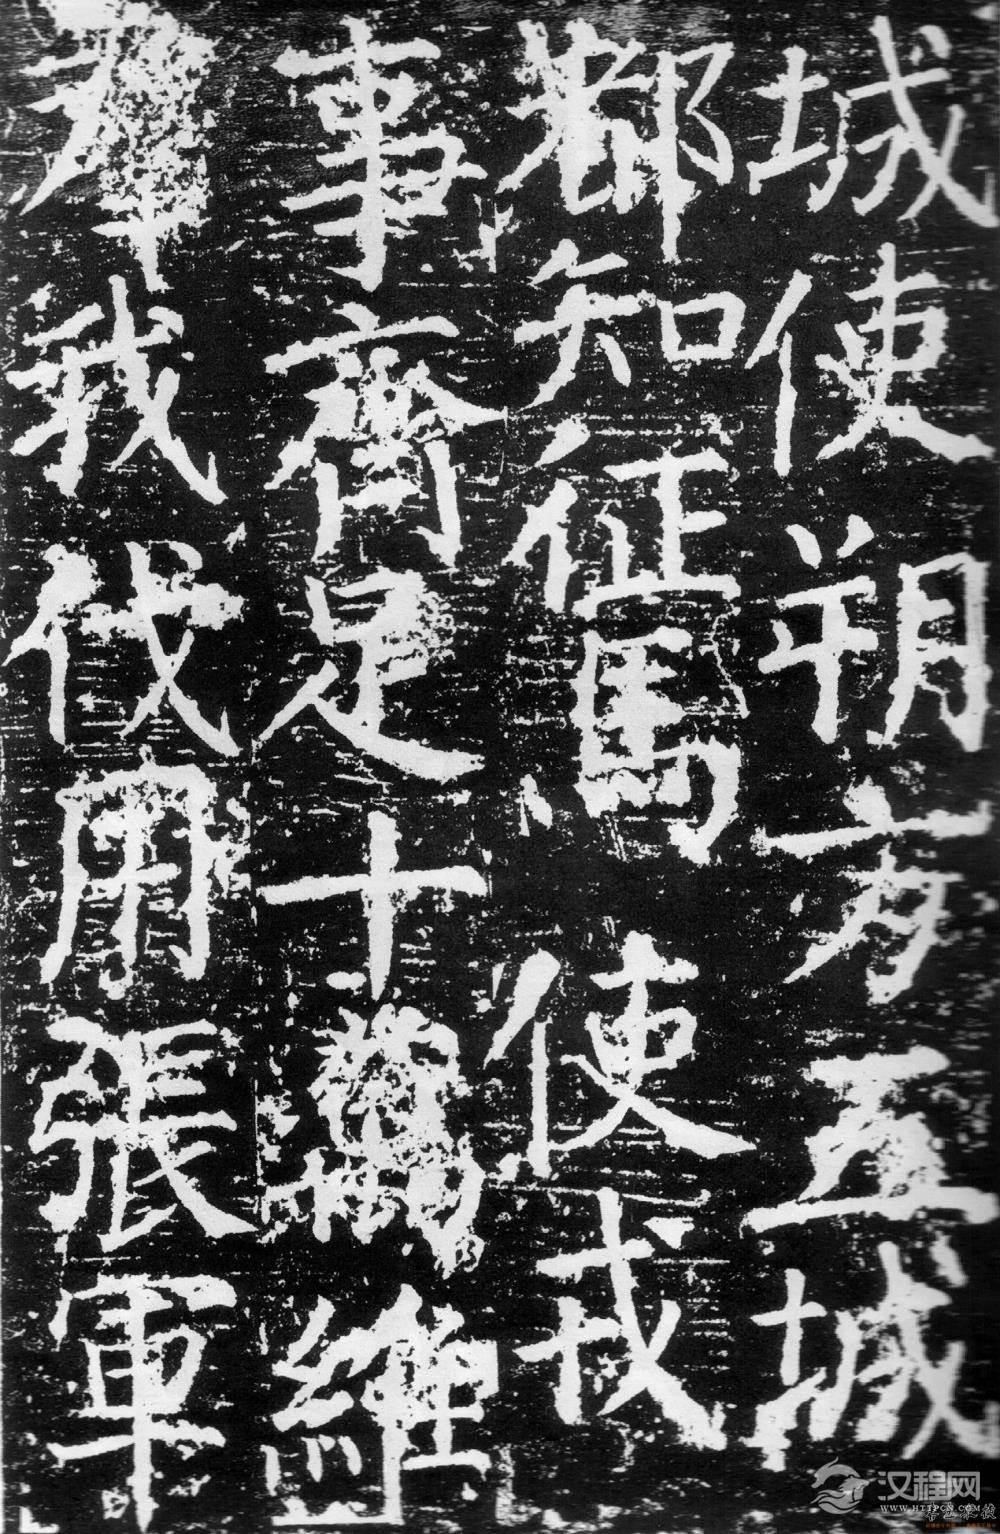 城使朔方五城
都知征馬使戎
事齊足十萬維
羣我伐用張軍
汉程网
WWW.HTTPCN.COM